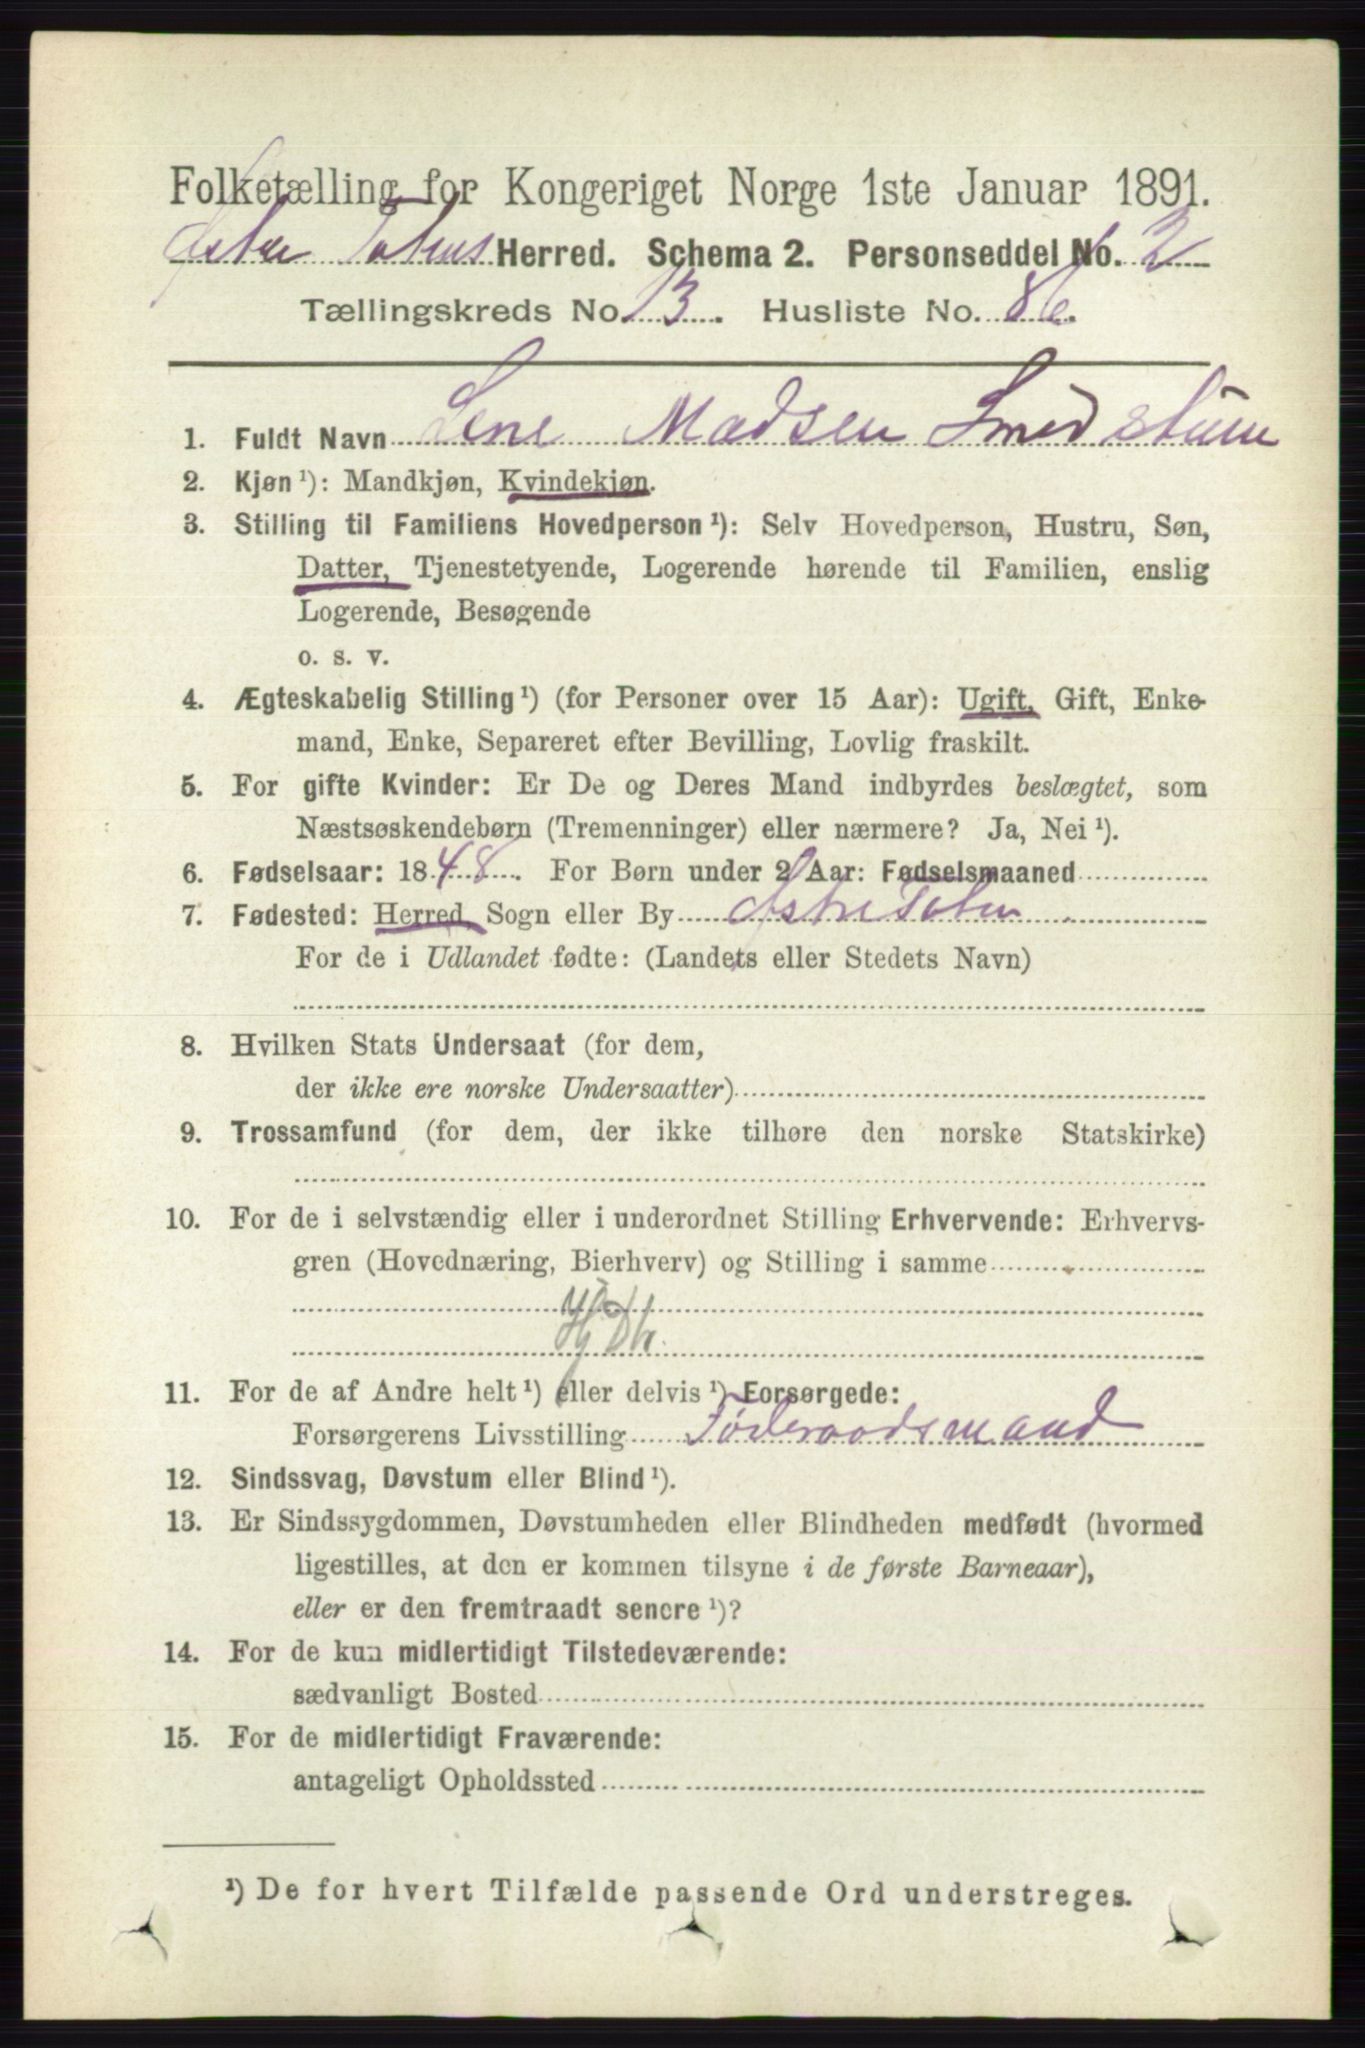 Folketælling for Kongeriget Norge 1ste Januar 1891.
Østre Totens Herred. Schema 2. Personseddel No. 2
Tællingskreds No. 13. Husliste No. 86.
1. Fuldt Navn Lene Madsen Smedstuen
2. Kjøn ¹): Mandkjøn, Kvindekjøn.
3. Stilling til Familiens Hovedperson ¹): Selv Hovedperson, Hustru, Søn,
Datter, Tjenestetyende, Logerende hørende til Familien, enslig
Logerende, Besøgende
o. s. v.
4. Ægteskabelig Stilling ¹) (for Personer over 15 Aar): Ugift, Gift, Enke-
mand, Enke, Separeret efter Bevilling, Lovlig fraskilt.
5. For gifte Kvinder: Er De og Deres Mand indbyrdes beslægtet, som
Næstsøskendebørn (Tremenninger) eller nærmere? Ja, Nei ¹).
6. Fødselsaar: 1848. For Børn under 2 Aar: Fødselsmaaned
7. Fødested: Herred, Sogn eller By Østre Toten
For de i Udlandet fødte: (Landets eller Stedets Navn)
8. Hvilken Stats Undersaat (for dem,
der ikke ere norske Undersaatter)
9. Trossamfund (for dem, der ikke tilhøre den norske Statskirke)
10. For de i selvstændig eller i underordnet Stilling Erhvervende: Erhvervs-
gren (Hovednæring, Bierhverv) og Stilling i samme
11. For de af Andre helt ¹) eller delvis ¹) Forsørgede:
Forsørgerens Livsstilling Föderaadsmand
12. Sindssvag, Døvstum eller Blind ¹).
13. Er Sindssygdommen, Døvstumheden eller Blindheden medfødt (hvormed
ligestilles, at den er kommen tilsyne i de første Barneaar),
eller er den fremtraadt senere ¹)?
14. For de kun midlertidigt Tilstedeværende:
sædvanligt Bosted
15. For de midlertidigt Fraværende:
antageligt Opholdssted
¹) De for hvert Tilfælde passende Ord understreges.